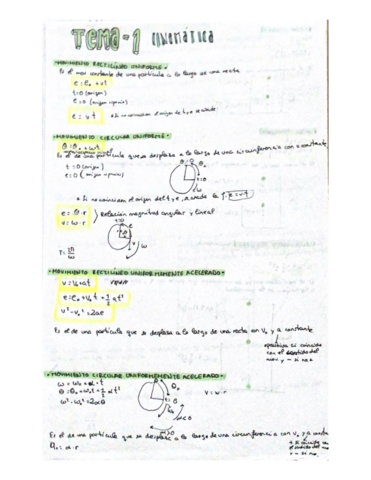 TEMA-1 CINEMÁTICA
·MOVIMIENTO RECTILÍNEO UNIFORME·
Es el mov constante de una partícula a lo largo de una recta
e = e₀ + vt
t=0 (origen)
e=0 (origen espacio)
e = v t
·MOVIMIENTO CIRCULAR UNIFORME·
θ = θ₀ + ωt
Es el de una partícula que se desplaza a lo largo de una circunferencia con ω constante
t=0 (origen)
e=0 (origen espacio)
* Si no coinciden el origen del t y e, se usa la f. e=vt
e = θ·r
v = ω·r
Relación magnitud angular y lineal
·MOVIMIENTO RECTILÍNEO UNIFORMEMENTE ACELERADO·
v = v₀ + at
e = e₀ + v₀t + ½at²
v² - v₀² = 2ae
Es el de una partícula que se desplaza a lo largo de una recta con v₀ y a constante
·MOVIMIENTO CIRCULAR UNIFORMEMENTE ACELERADO·
ω = ω₀ + α·t
θ = θ₀ + ω₀t + ½αt²
ω² - ω₀² = 2αθ
v = ω·r
Es el de una partícula que se desplaza a lo largo de una circunferencia con v₀ y a constante